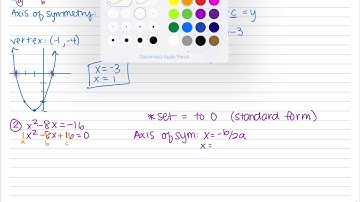 Axis of symmetry:
c = y
-3
vertex: (-1, -4)
x = -3
x = 1
Disconnect Apple Pencil
② x²-8x=-16
* set = to 0 (standard form)
1x²-8x+16=0
a b c
Axis of sym: x=-b/2a
x =